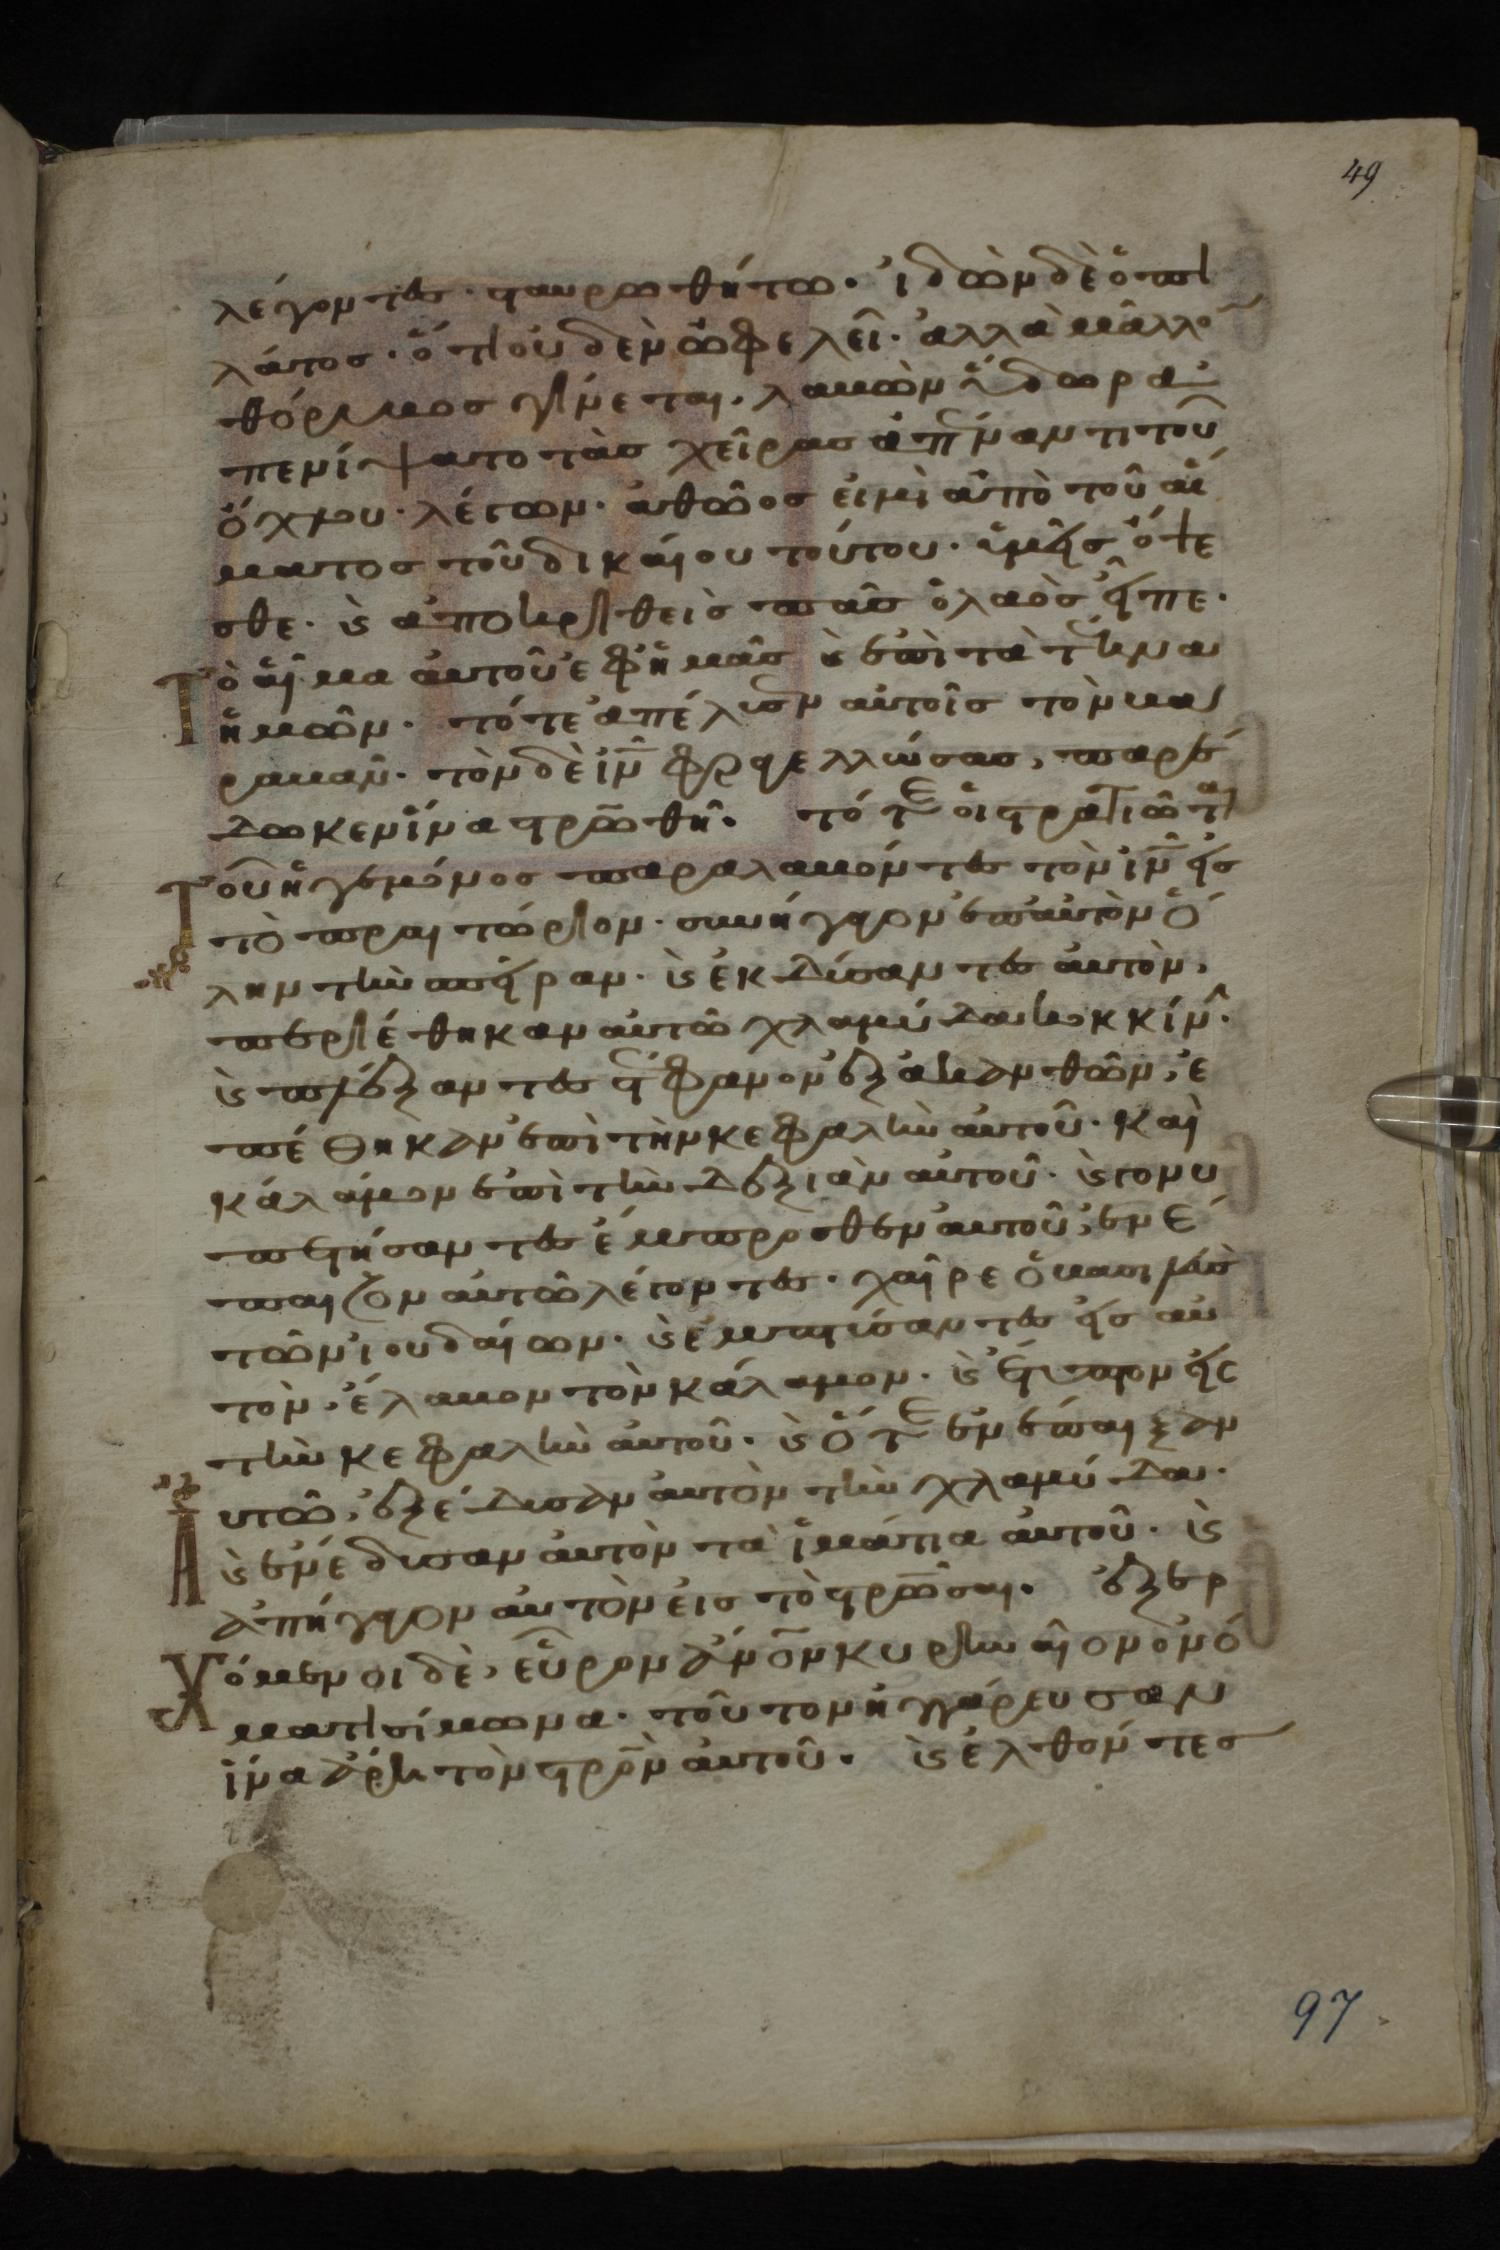 49
λέγοντες· σταυρωθήτω· ἰδὼν δὲ ὁ πι
λάτος· ὅτι οὐδὲν ὠφελεῖ· ἀλλὰ μᾶλλο
θόρυβος γίνεται· λαβὼν ὕδωρ ἀ
πενίψατο τὰς χεῖρας ἀπέναντι τοῦ
ὄχλου· λέγων· ἀθῶος εἰμὶ ἀπὸ τοῦ αἵ
ματος τοῦ δικαίου τούτου· ὑμεῖς ὄψε
σθε· ϗ ἀποκριθεὶς πᾶς ὁ λαὸς εἶπε·
Τὸ αἷμα αὐτοῦ ἐφ ἡμᾶς ϗ ἐπὶ τὰ τέκνα
ἡμῶν· τότε ἀπέλυσεν αὐτοῖς τὸν βα
ραβᾶν· τὸν δὲ ιν̅ φραγελλώσας, παρέ
δωκεν ἵνα στρω̅θῆ· τότε οἱ στρατιῶται
Τοῦ ἡγεμόνος παραλαβόντες τὸν ιν̅ εἰς
τὸ πραιτώριον· συνήγαγον ἐπ αὐτὸν ὅ
λην τὴν σπεῖραν· ϗ ἐκδύσαντες αὐτὸν,
περιέθηκαν αὐτῶ χλαμύδα κοκκίν·
ϗ πλέξαντες στέφανον ἐξ ἀκανθῶν, ἐ
πέθηκαν ἐπὶ τὴν κεφαλὴν αὐτοῦ· καὶ
κάλαμον ἐπὶ τὴν δεξιὰν αὐτοῦ· ϗ γονυ
πετήσαντες ἔμπροσθεν αὐτοῦ, ἐνέ
παιζον αὐτῶ λέγοντες· χαῖρε ὁ βασιλεὺς
τῶν ἰουδαίων· ϗ ἐμπτύσαντες εἰς αὐ
τὸν, ἔλαβον τὸν κάλαμον· ϗ ἔτυπτον εἰς
τὴν κεφαλὴν αὐτοῦ· ϗ ὅτε ἐνέπαιξαν
Αυτῶ, ἐξέδυσαν αὐτὸν τὴν χλαμύδα·
ϗ ἐνέδυσαν αὐτὸν τὰ ἱμάτια αὐτοῦ· ϗ
ἀπήγαγον αὐτὸν εἰς τὸ στρω̅σαι· ἐξερ
Χόμενοι δὲ, εὗρον ἄνον̅ κυρηναῖον ὀνό
ματι σίμωνα· τοῦτον ἠγγάρευσαν
ἵνα ἄρη τὸν στρο̅ν αὐτοῦ· ϗ ἐλθόντες
97